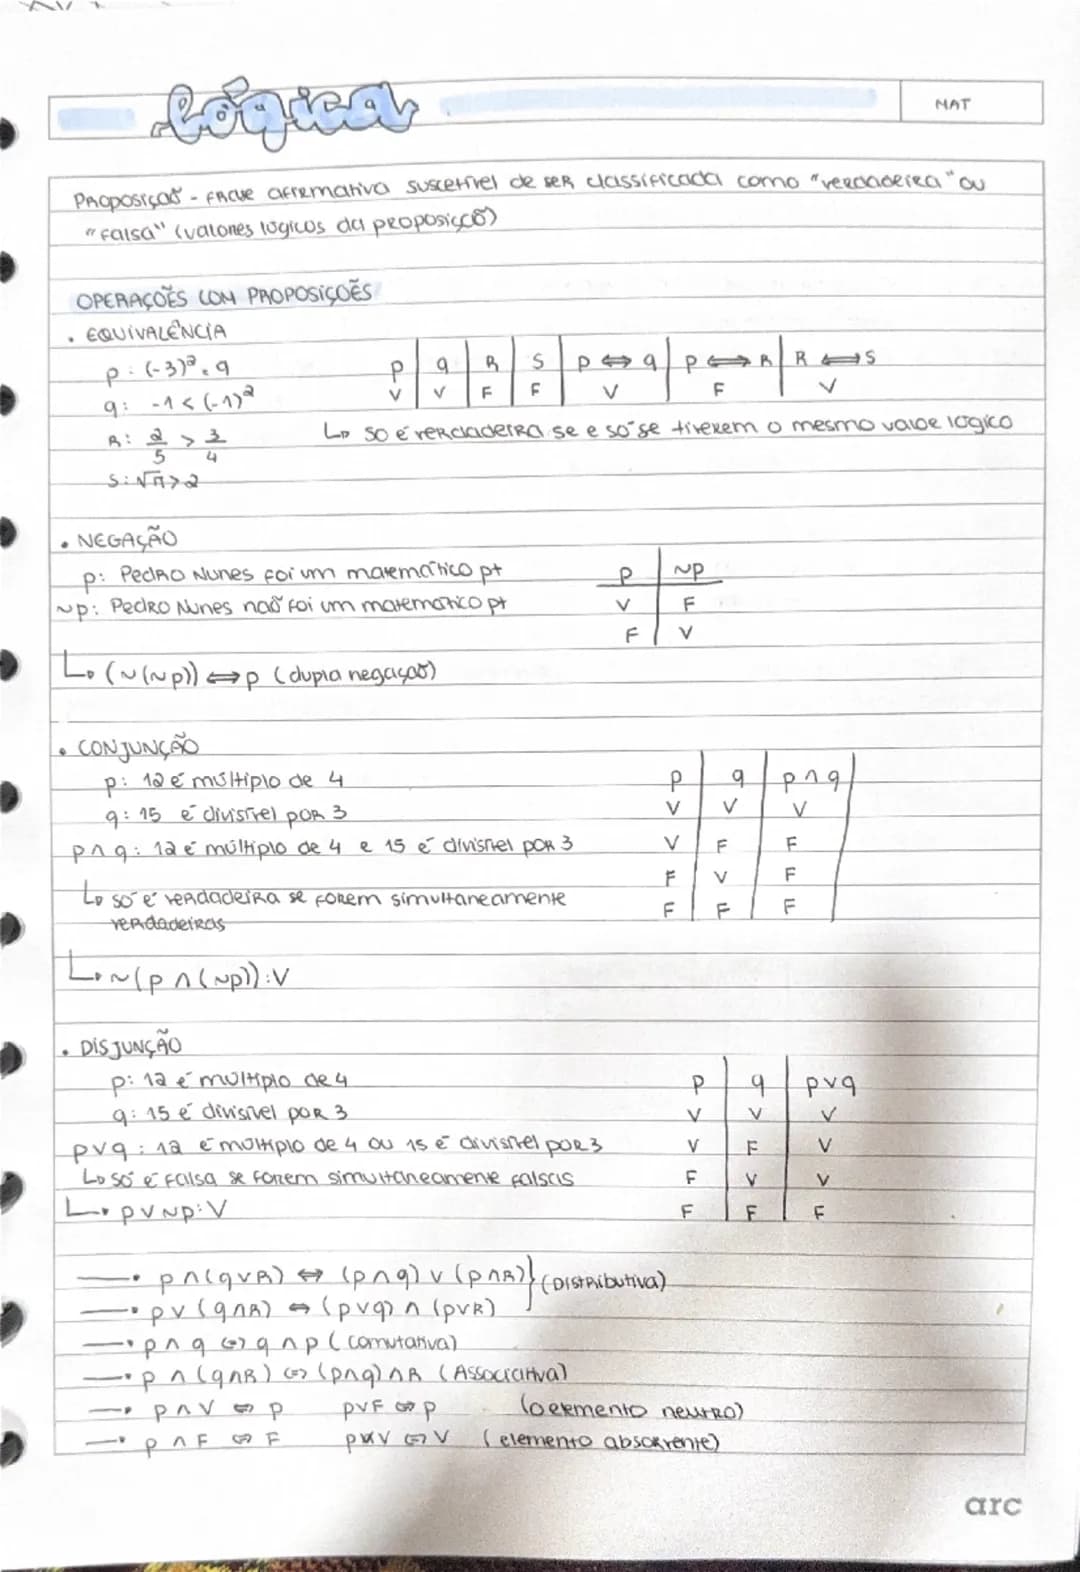 Lógica
MAT
Proposição - frase afirmativa suscetível de ser classificada como "verdadeira" ou
"falsa" (valores lógicos da proposição)
OPERAÇÕES COM PROPOSIÇÕES
• EQUIVALÊNCIA
p: (-3)² = 9
q: -1 < (-1)²
R: 2/5 > 3/4
S: √π > 2
p | q | R | S | p ⟺ q | p ⟺ R | R ⟺ S
V | V | F | F | V | F | V
↳ só é verdadeira se e só se tiverem o mesmo valor lógico
• NEGAÇÃO
p: Pedro Nunes foi um matemático pt
~p: Pedro Nunes não foi um matemático pt
p | ~p
V | F
F | V
↳ (~(~p)) ⟺ p (dupla negação)
• CONJUNÇÃO
p: 12 é múltiplo de 4
q: 15 é divisível por 3
p ∧ q: 12 é múltiplo de 4 e 15 é divisível por 3
↳ só é verdadeira se forem simultaneamente
verdadeiras
p | q | p ∧ q
V | V | V
V | F | F
F | V | F
F | F | F
↳ ~(p ∧ (~p)): V
• DISJUNÇÃO
p: 12 é múltiplo de 4
q: 15 é divisível por 3
p ∨ q: 12 é múltiplo de 4 ou 15 é divisível por 3
↳ só é falsa se forem simultaneamente falsas
↳ p ∨ ~p: V
p | q | p ∨ q
V | V | V
V | F | V
F | V | V
F | F | F
→ p ∧ (q ∨ R) ⟺ (p ∧ q) ∨ (p ∧ R) } (Distributiva)
→ p ∨ (q ∧ R) ⟺ (p ∨ q) ∧ (p ∨ R)
→ p ∧ q ⟺ q ∧ p (comutativa)
→ p ∧ (q ∧ R) ⟺ (p ∧ q) ∧ R (Associativa)
→ p ∧ V ⟺ p p ∨ F ⟺ p (o elemento neutro)
→ p ∧ F ⟺ F p ∨ V ⟺ V (elemento absorvente)
arc